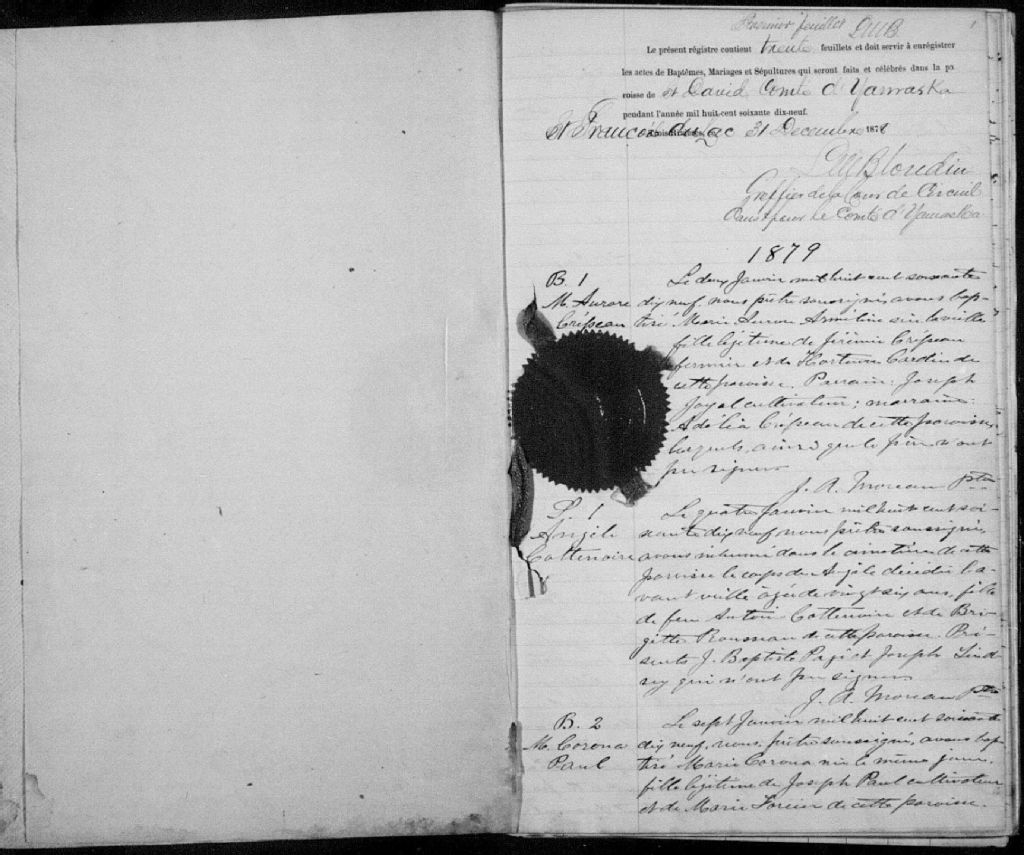 Premier feuillet DMB 1
Le présent régistre contient trente feuillets et doit servir à enrégistrer
les actes de Baptêmes, Mariages et Sépultures qui seront faits et célébrés dans la pa
roisse de St David Comté d'Yamaska
pendant l'année mil huit-cent soixante dix-neuf.
St François du Lac 31 Decembre 1878
DM Blondin
Greffier de la Cour de Circuit
dans & pour le Comté d'Yamaska
1879
B. 1
M. Aurore
Crépeau
Le deux Janvier mil huit cent soixante
dix neuf, nous prêtre soussigné, avons bap-
tisé Marie Aurore née la veille
fille légitime de Jérémie Crépeau
fermier et de Hortense Cardin de
cette paroisse. Parrain: Joseph
Joyal cultivateur; marraine:
Adélia Crépeau de cette paroisse,
lesquels, ainsi que le père n'ont
pu signer.
J. A. Moreau Ptre
S. 1
Angèle
Cottenoire
Le quatre Janvier mil huit cent soi-
xante dix neuf, nous prêtre soussigné,
avons inhumé dans le cimetière de cette
paroisse le corps de Angèle décédée l'a-
vant veille âgée de vingt six ans, fille
de feu Antoine Cottenoire et de Bri-
gitte Rousseau de cette paroisse. Pré-
sents J. Baptiste et Joseph
qui n'ont pu signer
J. A. Moreau Ptre
B. 2
M. Corona
Paul
Le sept Janvier mil huit cent soixante
dix neuf, nous, prêtre soussigné, avons bap-
tisé Marie Corona née le même jour,
fille légitime de Joseph Paul cultivateur
et de Marie Forcier de cette paroisse.